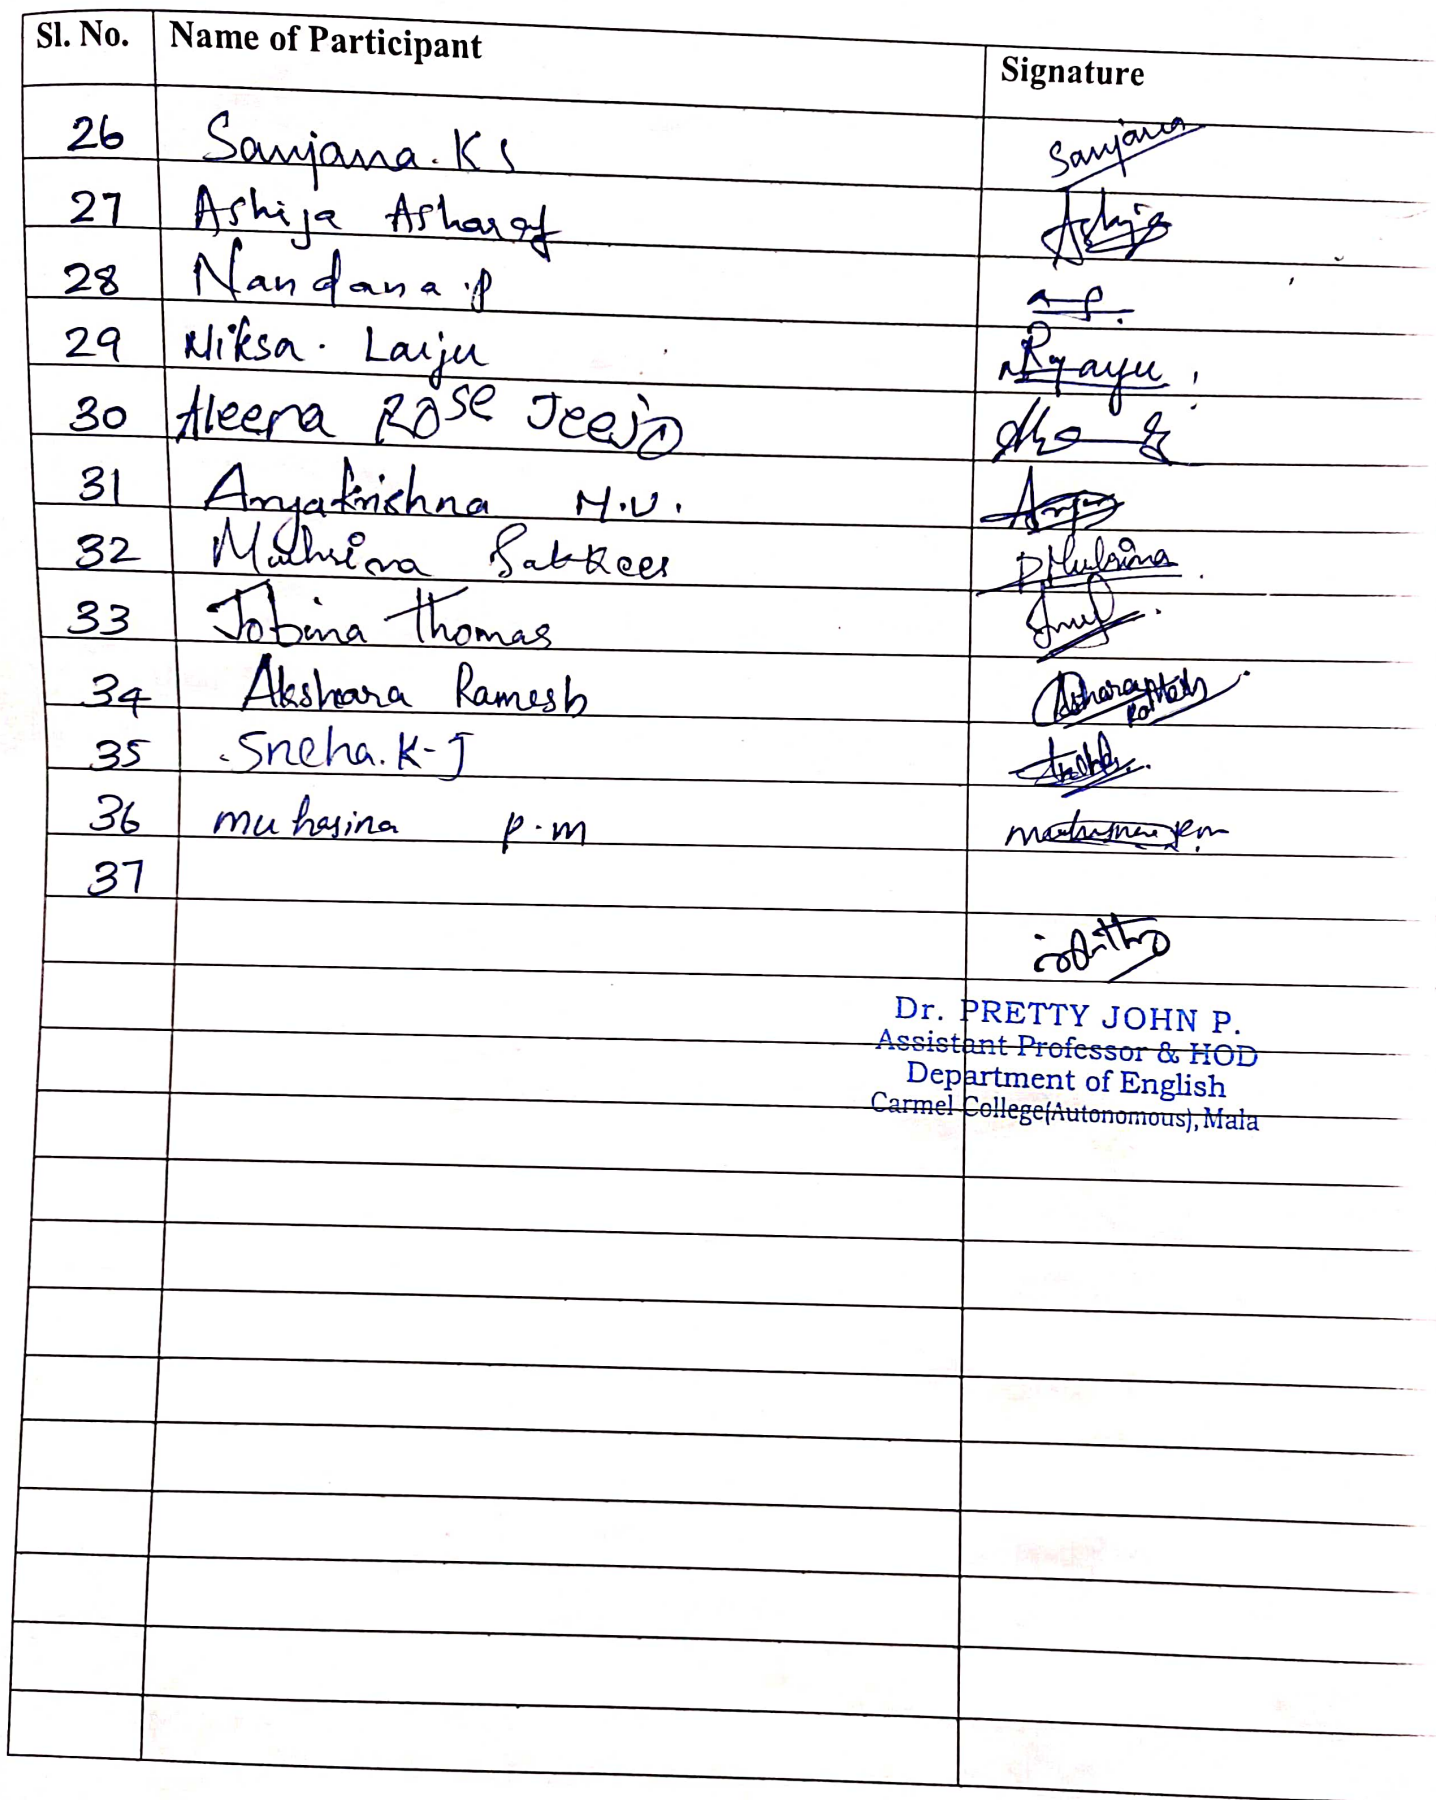 Sl. No. Name of Participant Signature
26 Sanjana. K S Sanjana
27 Ashija Asharaf Ashija
28 Nandana .P
29 Niksa . Laiju
30 Aleena Rose Jeejo
31 Aryakrishna M.U.
32 Muhsina
33 Jobina Thomas
34 Akshara Ramesh
35 Sneha. K-J Sneha
36 muhasina p.m
37
Dr. PRETTY JOHN P.
Assistant Professor & HOD
Department of English
Carmel College(Autonomous), Mala